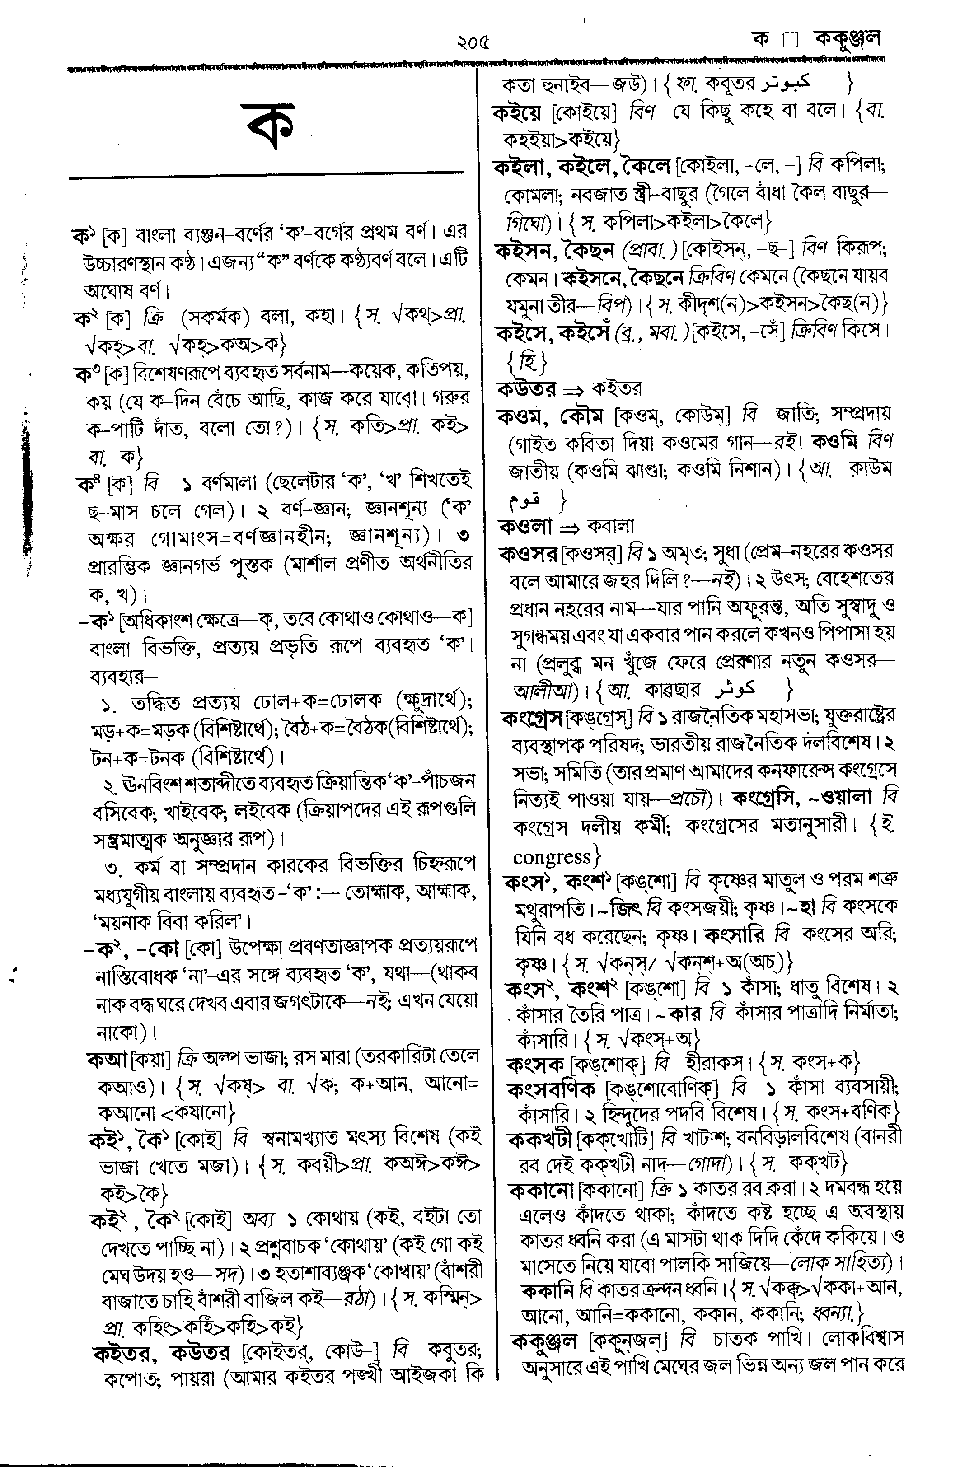 ২০৫
ক ⎕ ককুঞ্জল
ক
ক¹ [ক] বাংলা ব্যঞ্জন-বর্ণের ‘ক’-বর্গের প্রথম বর্ণ। এর
উচ্চারণস্থান কণ্ঠ। এজন্য “ক” বর্ণকে কণ্ঠ্যবর্ণ বলে। এটি
অঘোষ বর্ণ।
ক² [ক] ক্রি (সকর্মক) বলা, কহা। {স. √কথ্>প্রা.
√কহ্>বা. √কহ্>কঅ>ক}
ক³ [ক] বিশেষণরূপে ব্যবহৃত সর্বনাম—কয়েক, কতিপয়,
কয় (যে ক-দিন বেঁচে আছি, কাজ করে যাবো। গরুর
ক-পাটি দাঁত, বলো তো?)। {স. কতি>প্রা. কই>
বা. ক}
ক⁴ [ক] বি ১ বর্ণমালা (ছেলেটার ‘ক’, ‘খ’ শিখতেই
ছ-মাস চলে গেল)। ২ বর্ণ-জ্ঞান; জ্ঞানশূন্য (‘ক’
অক্ষর গোমাংস=বর্ণজ্ঞানহীন; জ্ঞানশূন্য)। ৩
প্রারম্ভিক জ্ঞানগর্ভ পুস্তক (মার্শাল প্রণীত অর্থনীতির
ক, খ)।
-ক¹ [অধিকাংশ ক্ষেত্রে—ক্, তবে কোথাও কোথাও—ক]
বাংলা বিভক্তি, প্রত্যয় প্রভৃতি রূপে ব্যবহৃত ‘ক’।
ব্যবহার—
১. তদ্ধিত প্রত্যয় ঢোল+ক=ঢোলক (ক্ষুদ্রার্থে);
মড়+ক=মড়ক (বিশিষ্টার্থে); বৈঠ+ক=বৈঠক(বিশিষ্টার্থে);
টন+ক-টনক (বিশিষ্টার্থে)।
২. ঊনবিংশ শতাব্দীতে ব্যবহৃত ক্রিয়ান্তিক ‘ক’-পাঁচজন
বসিবেক; খাইবেক; লইবেক (ক্রিয়াপদের এই রূপগুলি
সম্ভ্রমাত্মক অনুজ্ঞার রূপ)।
৩. কর্ম বা সম্প্রদান কারকের বিভক্তির চিহ্নরূপে
মধ্যযুগীয় বাংলায় ব্যবহৃত-‘ক’ :— তোহ্মাক, আহ্মাক,
‘ময়নাক বিবা করিল’।
-ক², -কো [কো] উপেক্ষা প্রবণতাজ্ঞাপক প্রত্যয়রূপে
নাস্তিবোধক ‘না’-এর সঙ্গে ব্যবহৃত ‘ক’, যথা—(থাকব
নাক বদ্ধ ঘরে দেখব এবার জগৎটাকে—নই; এখন যেয়ো
নাকো)।
কআ [কয়া] ক্রি অল্প ভাজা; রস মারা (তরকারিটা তেলে
কআও)। {স. √কষ্> বা. √ক; ক+আন, আনো=
কআনো <কযানো}
কই¹, কৈ¹ [কোই] বি স্বনামখ্যাত মৎস্য বিশেষ (কই
ভাজা খেতে মজা)। {স. কবয়ী>প্রা. কঅঈ>কঈ>
কই>কৈ}
কই², কৈ² [কোই] অব্য ১ কোথায় (কই, বইটা তো
দেখতে পাচ্ছি না)। ২ প্রশ্নবাচক ‘কোথায়’ (কই গো কই
মেঘ উদয় হও—সদ)। ৩ হতাশাব্যঞ্জক ‘কোথায়’ (বাঁশরী
বাজাতে চাহি বাঁশরী বাজিল কই—রঠা)। {স. কস্মিন্>
প্রা. কহিং>কহিঁ>কহি>কই}
কইতর, কউতর [কোইতর্, কোউ-] বি কবুতর;
কপোত; পায়রা (আমার কইতর পঙ্খী আইজকা কি
কতা হুনাইব—জউ)। {ফা. কবূতর كبوتر }
কইয়ে [কোইয়ে] বিণ যে কিছু কহে বা বলে। {বা.
কহইয়া>কইয়ে}
কইলা, কইলে, কৈলে [কোইলা, -লে, -] বি কপিলা;
কোমলা; নবজাত স্ত্রী-বাছুর (গৈলে বাঁধা কৈল বাছুর—
গিঘো)। {স. কপিলা>কইলা>কৈলে}
কইসন, কৈছন (প্রাবা.) [কোইসন্, -ছ-] বিণ কিরূপ;
কেমন। কইসনে, কৈছনে ক্রিবিণ কেমনে (কৈছনে যায়ব
যমুনা তীর—বিপ)। {স. কীদৃশ(ন)>কইসন>কৈছ(ন)}
কইসে, কইসেঁ (ব্র., মবা.) [কইসে, -সেঁ] ক্রিবিণ কিসে।
{হি}
কউতর ⇒ কইতর
কওম, কৌম [কওম্, কোউম্] বি জাতি; সম্প্রদায়
(গাইত কবিতা দিয়া কওমের গান—রই। কওমি বিণ
জাতীয় (কওমি ঝাণ্ডা; কওমি নিশান)। {আ. ক়াউম
قوم }
কওলা ⇒ কবালা
কওসর [কওসর্] বি ১ অমৃত; সুধা (প্রেম-নহরের কওসর
বলে আমারে জহর দিলি?—নই)। ২ উৎস; বেহেশতের
প্রধান নহরের নাম—যার পানি অফুরন্ত, অতি সুস্বাদু ও
সুগন্ধময় এবং যা একবার পান করলে কখনও পিপাসা হয়
না (প্রলুব্ধ মন খুঁজে ফেরে প্রেরণার নতুন কওসর—
আলীআ)। {আ. কাৱছার كوثر }
কংগ্রেস [কঙগ্রেস্] বি ১ রাজনৈতিক মহাসভা; যুক্তরাষ্ট্রের
ব্যবস্থাপক পরিষদ; ভারতীয় রাজনৈতিক দলবিশেষ। ২
সভা; সমিতি (তার প্রমাণ আমাদের কনফারেন্স কংগ্রেসে
নিত্যই পাওয়া যায়—প্রচৌ)। কংগ্রেসি, ~ওয়ালা বি
কংগ্রেস দলীয় কর্মী; কংগ্রেসের মতানুসারী। {ই.
congress}
কংস¹, কংশ¹ [কঙ্শো] বি কৃষ্ণের মাতুল ও পরম শত্রু
মথুরাপতি। ~জিৎ বি কংসজয়ী; কৃষ্ণ। ~হা বি কংসকে
যিনি বধ করেছেন; কৃষ্ণ। কংসারি বি কংসের অরি;
কৃষ্ণ। {স. √কন্‌স্/ √কন্‌শ+অ(অচ্)}
কংস², কংশ² [কঙ্শো] বি ১ কাঁসা; ধাতু বিশেষ। ২
কাঁসার তৈরি পাত্র। ~কার বি কাঁসার পাত্রাদি নির্মাতা;
কাঁসারি। {স. √কংস্+অ}
কংসক [কঙ্শোক্] বি হীরাকস। {স. কংস+ক}
কংসবণিক [কঙ্শোবোণিক্] বি ১ কাঁসা ব্যবসায়ী;
কাঁসারি। ২ হিন্দুদের পদবি বিশেষ। {স. কংস+বণিক}
ককখটী [কক্‌খোটি] বি খাটাশ; বনবিড়ালবিশেষ (বানরী
রব দেই ককখটী নাদ—গোদা)। {স. ককখট}
ককানো [ককানো] ক্রি ১ কাতর রব করা। ২ দমবন্ধ হয়ে
এলেও কাঁদতে থাকা; কাঁদতে কষ্ট হচ্ছে এ অবস্থায়
কাতর ধ্বনি করা (এ মাসটা থাক দিদি কেঁদে ককিয়ে। ও
মাসেতে নিয়ে যাবো পালকি সাজিয়ে—লোক সাহিত্য)।
ককানি বি কাতর ক্রন্দন ধ্বনি। {স. √কক্ক্>√ককা+আন,
আনো, আনি=ককানো, ককান, ককানি; ধ্বন্যা.}
ককুঞ্জল [ককুন্‌জল্] বি চাতক পাখি। লোকবিশ্বাস
অনুসারে এই পাখি মেঘের জল ভিন্ন অন্য জল পান করে